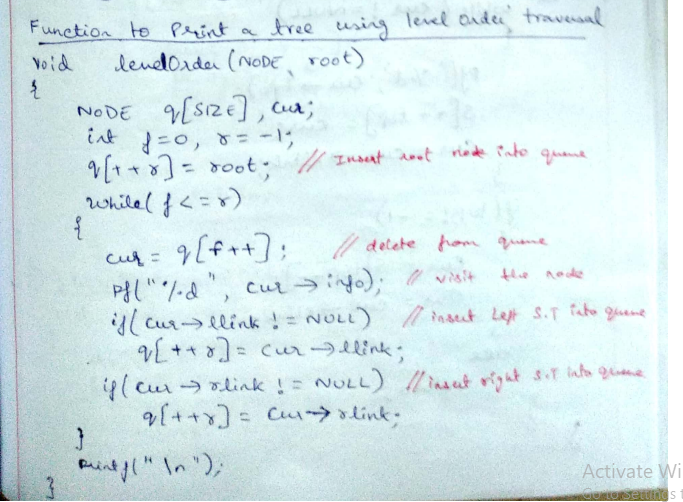 Function to Print a tree using level order traversal
Void levelOrder (NODE, root)
{
NODE q[SIZE], cur;
int f=0, r=-1;
q[++r] = root; // Insert root node into queue
while( f<=r)
{
cur = q[f++]; // delete from queue
Pf("%d", cur → info); // visit the node
if( cur→llink != NULL) // insert Left S.T into queue
q[++r] = cur →llink;
if( cur → rlink != NULL) // insert right S.T into queue
q[++r] = cur→rlink;
}
printf(" \n ");
}
Activate Wi
Go to Settings t